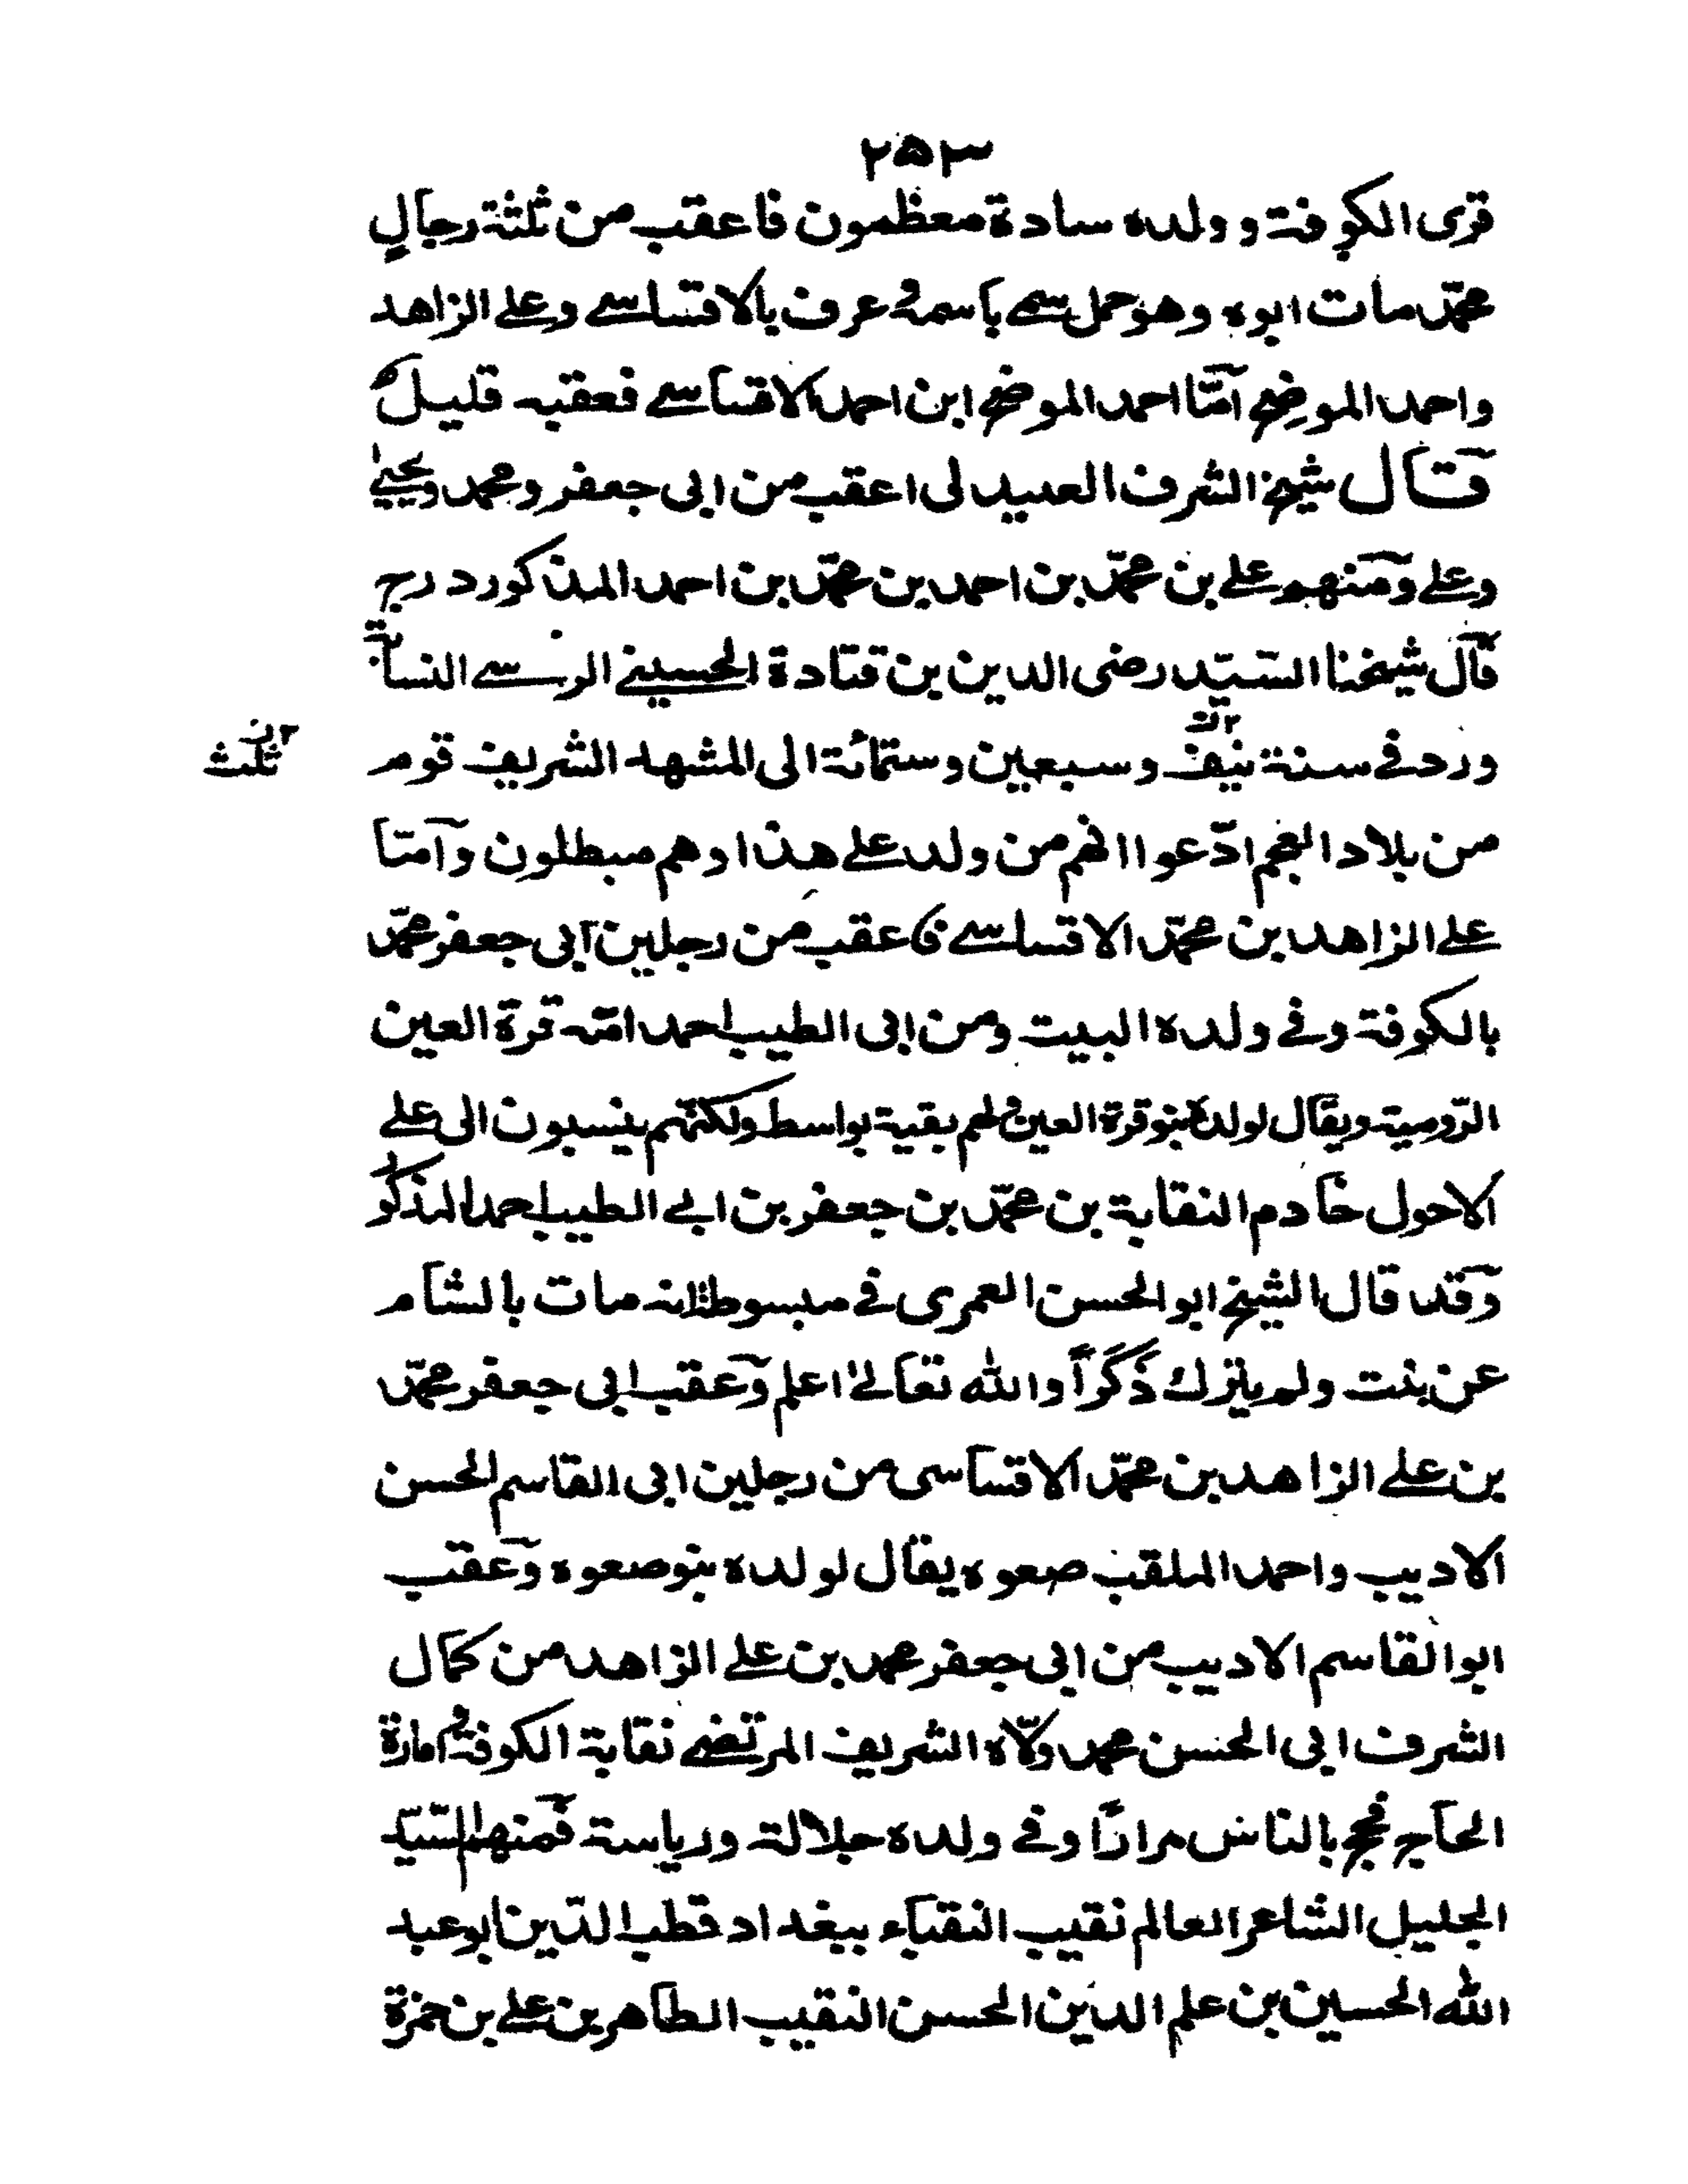 ۲۵۳
قرى الكوفة وولده سادة معظمون فاعقب من ثلثة رجالٍ
محمّد مات ابوه وهو حمل سمى باسمه وعرف بالاقساسے وعلے الزاهد
واحمد الموضح اَمّا احمد الموضح ابن احمد الاقساسے فعقبه قليل
قال شيخ الشرف العبيدلى اعقب من ابى جعفر ومحمد ويحيىٰ
وعلے ومنهم علے بن محمّد بن احمد بن محمّد بن احمد المذكور درج
قال شيخنا السّيّد رضى الدين بن قتادة الحسينے الرسے النسابة
ورد فے سنة نيّف وسبعين وستمائة الى المشهد الشريف قوم
ثلث
من بلاد العجم ادّعوا انهم من ولد علے هذا وهم مبطلون واَمّا
علے الزاهد بن محمّد الاقساسے فاعقب من رجلين اَبى جعفر محمّد
بالكوفة وفے ولده البيت ومن ابى الطيب احمد امّه قرة العين
الرّومية ويقال لولده بنو قرة العين ولهم بقية بواسط ولكنّهم ينسبون الى علے
الاحول خادم النقابة بن محمّد بن جعفر بن ابے الطيب احمد المذكور
وقد قال الشيخ ابو الحسن العمرى فے مبسوطه انه مات بالشام
عن بنت ولم يترك ذَكَراً والله تعالىٰ اعلم وعقب ابى جعفر محمّد
بن علے الزاهد بن محمّد الاقساسى من رجلين ابى القاسم الحسن
الاديب واحمد الملقب صعوه يقال لولده بنو صعوه وعقب
ابو القاسم الاديب من ابى جعفر محمد بن علے الزاهد من كمال
الشرف ابى الحسن محمد ولّاه الشريف المرتضے نقابة الكوفة وامارة
الحاج فحج بالناس مراراً وفے ولده جلالة ورياسة فمنهم السّيّد
الجليل الشاعر العالم نقيب النقباء ببغداد قطب الدّين ابو عبد
الله الحسين بن علم الدين الحسن النقيب الطاهر بن علے بن حمزة